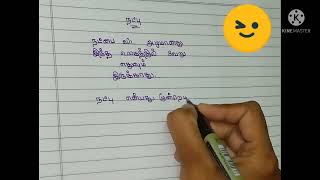 நட்பு
நட்பை விட அழகானது
இந்த உலகத்தில் வேறு
எதுவும்
இருக்காது.
நட்பு என்பது
KINEMASTER